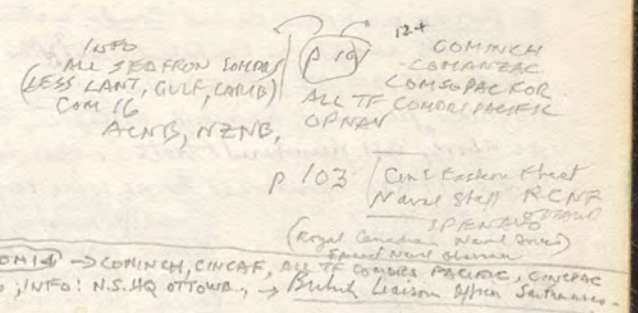 INFO
ALL SEAFRON COMDRS
(LESS LANT, GULF, CARIB)
COM 16
ACNB, NZNB,
p 19
124
COMINCH
COMANZAC
COMSOPACFOR
ALL TF COMDRS PACIFIC
OPNAV
p 103
CinC Eastern Fleet
Naval Staff RCNF
OTTAWA
SPENAVO
(Royal Canadian Naval
Special Naval Observer
COM14 → COMINCH, CINCAF, ALL TF COMDRS PACIFIC, CINCPAC
INFO: N.S.HQ OTTOWA, → British Liaison Officer